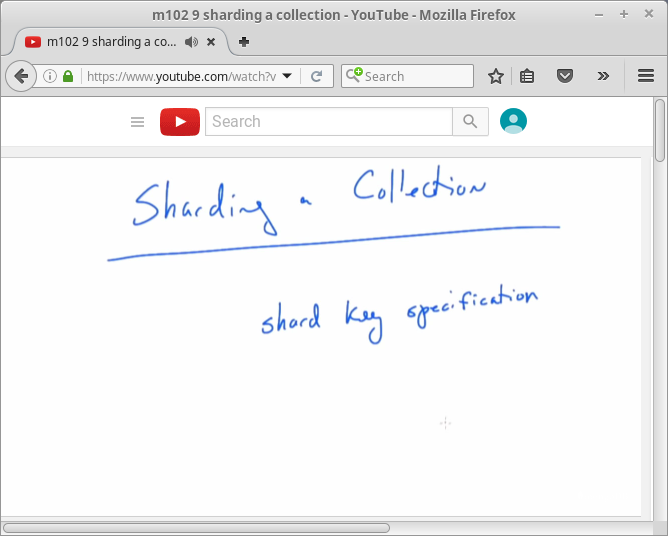 m102 9 sharding a collection - YouTube - Mozilla Firefox
m102 9 sharding a co...
https://www.youtube.com/watch?v
Search
Search
Sharding a Collection
shard key specification